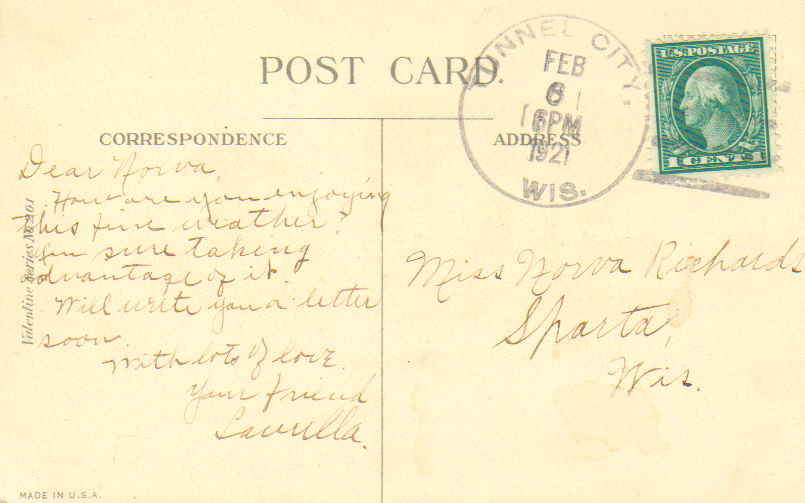 POST CARD.
TUNNEL CITY,
FEB
6
6 PM
1921
WIS.
U.S. POSTAGE
1 CENTS 1
CORRESPONDENCE
ADDRESS
Dear Norva,
How are you enjoying
this fine weather?
I'm sure taking
advantage of it.
Will write you a letter
soon.
With lots of love.
Your friend
Lavrilla.
Miss Norva Richards
Sparta,
Wis.
Valentine Series No 201
MADE IN U.S.A.